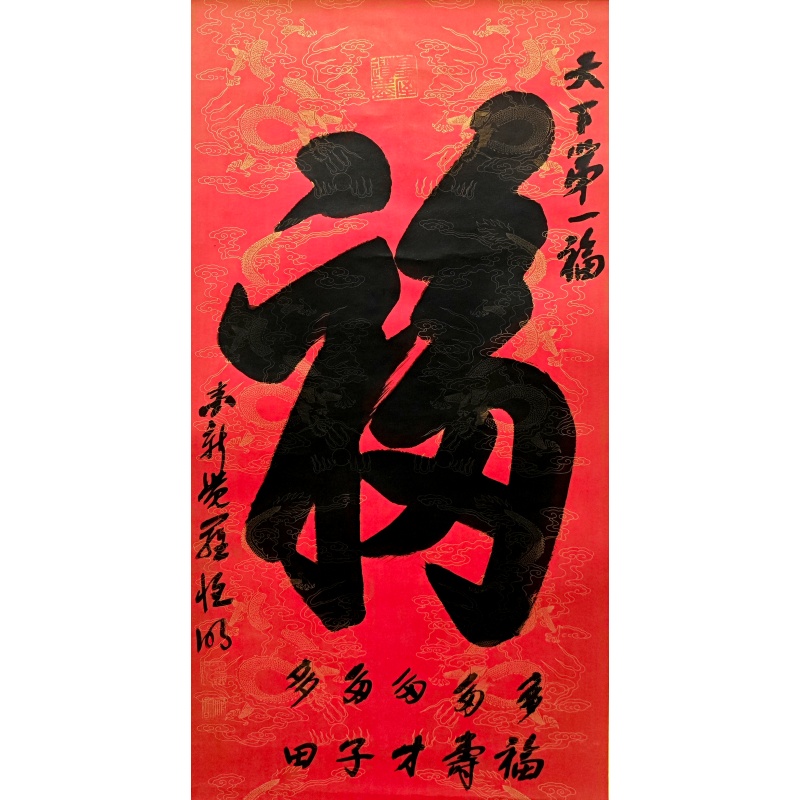 天下第一福
福
多福
多壽
多才
多子
多田
愛新覺羅恒